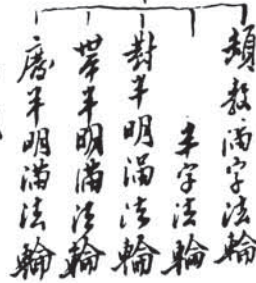 頓教滿字法輪
半字法輪
對半明滿法輪
帶半明滿法輪
廢半明滿法輪